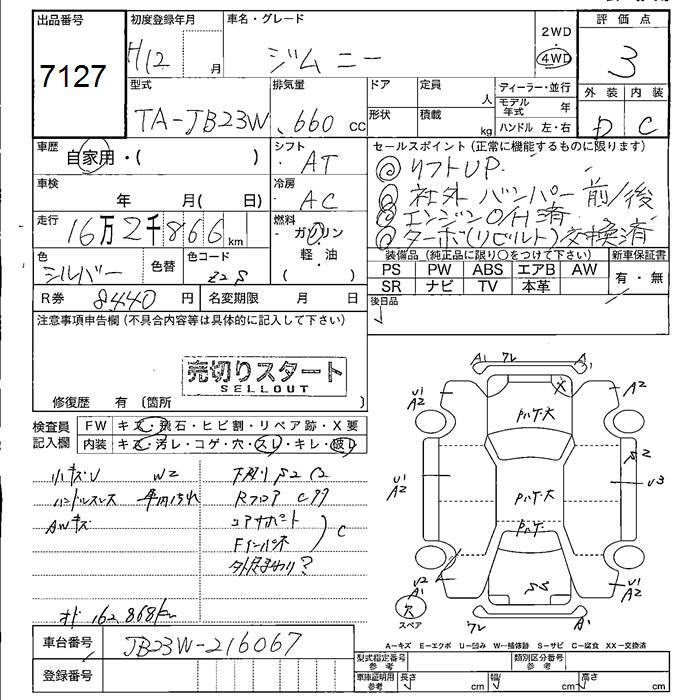 出品番号
7127
初度登録年月
H12 月
車名・グレード
ジムニー
2WD
4WD
評価点
3
外装 内装
D C
型式
TA-JB23W
排気量
660 cc
ドア
形状
定員 人
積載 kg
ディーラー・並行
モデル年式 年
ハンドル 左・右
車歴
自家用・( )
シフト
AT
車検
年 月( 日)
冷房
AC
走行
16万2千866km
燃料
ガソリン
軽・油
( )
色
シルバー
色替
色コード
R券 8440 円
名変期限 月 日
セールスポイント(正常に機能するものに限ります)
リフトUP
社外 バンパー 前/後
エンジンO/H済
ターボ(リビルト)交換済
装備品(純正品に限り〇をつけて下さい)
新車保証書
PS PW ABS エアB AW
SR ナビ TV 本革
有・無
後日品
注意事項申告欄(不具合内容等は具体的に記入して下さい)
売切りスタート
SELLOUT
修復歴 有(箇所 )
検査員
記入欄
FW キズ・飛石・ヒビ割・リペア跡・X要
内装 キズ・汚レ・コゲ・穴・スレ・キレ・破レ
小キズU W2
ハンドルスレス
AWキズ
下廻り S2 C2
Rフロア C
C
オド 162,868km
A1
A1
U1
A2
A2
U1
A2
S2
U3
U2
A1
U1
A2
A1
X
SS
穴
スペア
A-キズ E-エクボ U-凹み W-補修跡 S-サビ C-腐食 XX-交換済
車台番号
JB23W-216067
登録番号
型式指定番号
参考
類別区分番号
参考
車庫証明用
参考
長さ cm 幅 cm 高さ cm